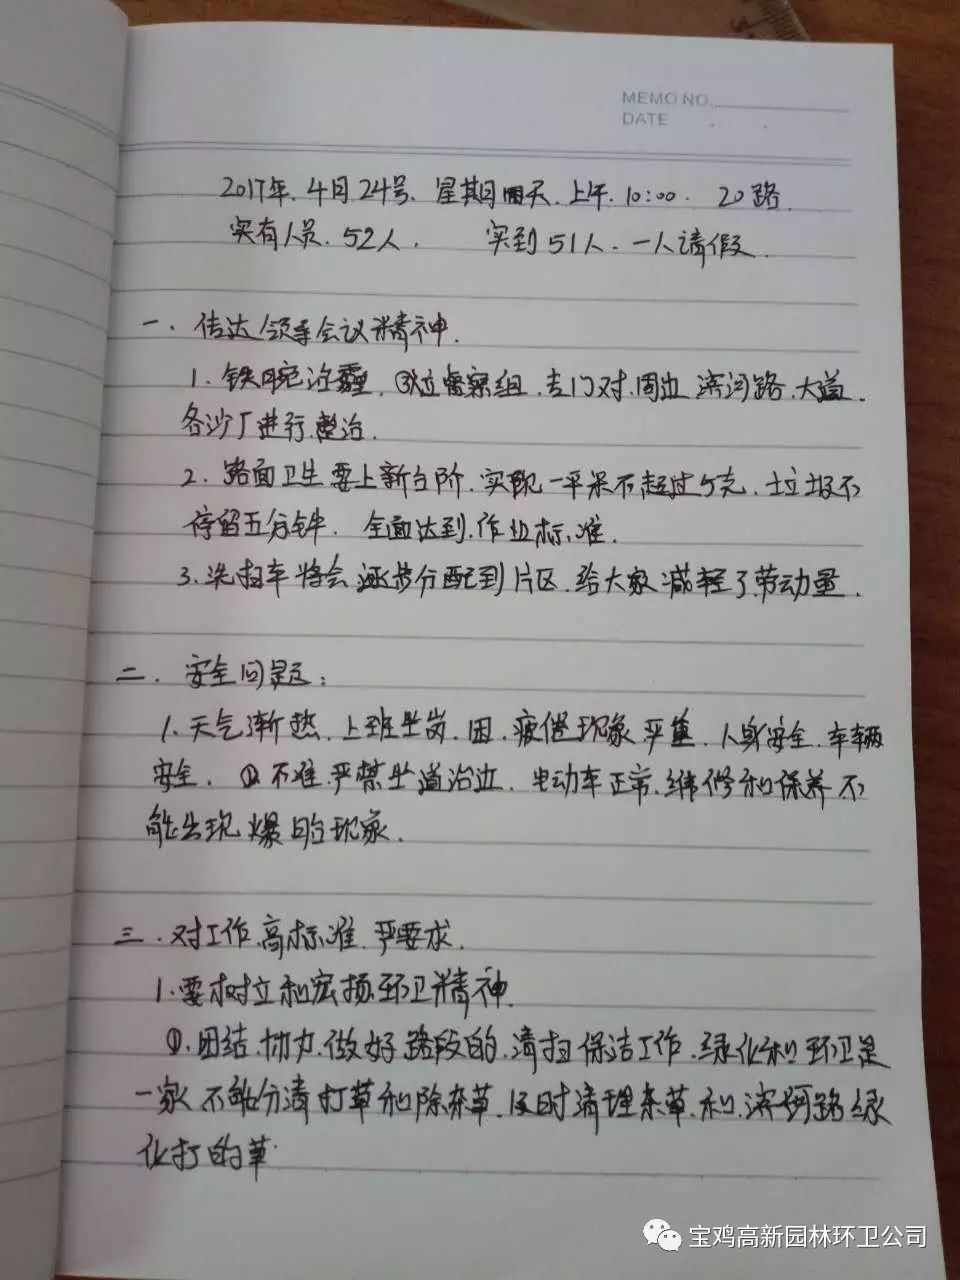 MEMO NO.
DATE
2017年.4月24号.星期天.上午.10:00. 20路.
实有人员.52人. 实到51人.一人请假.
一.传达领导会议精神.
1.铁腕治霾.成立督察组.专门对.周边滨河路.大道.
各沙厂进行.整治.
2.路面卫生要上新台阶.实现一平米不超过5克.垃圾不
停留五分钟.全面达到.作业标准.
3.洗扫车将会逐步分配到片区.给大家减轻了劳动量.
二.安全问题:
1.天气渐热.上班坐岗.困.疲倦现象严重.人身安全.车辆
安全.①不准.严禁坐道沿边.电动车正常.维修和保养不
能出现爆胎现象.
三.对工作.高标准.严要求.
1.要树立和宏扬环卫精神.
①.团结.协力.做好路段的.清扫保洁工作.绿化和环卫是
一家不能分清打草和除杂草.及时清理杂草.和.滨河路绿
化打的草.
宝鸡高新园林环卫公司